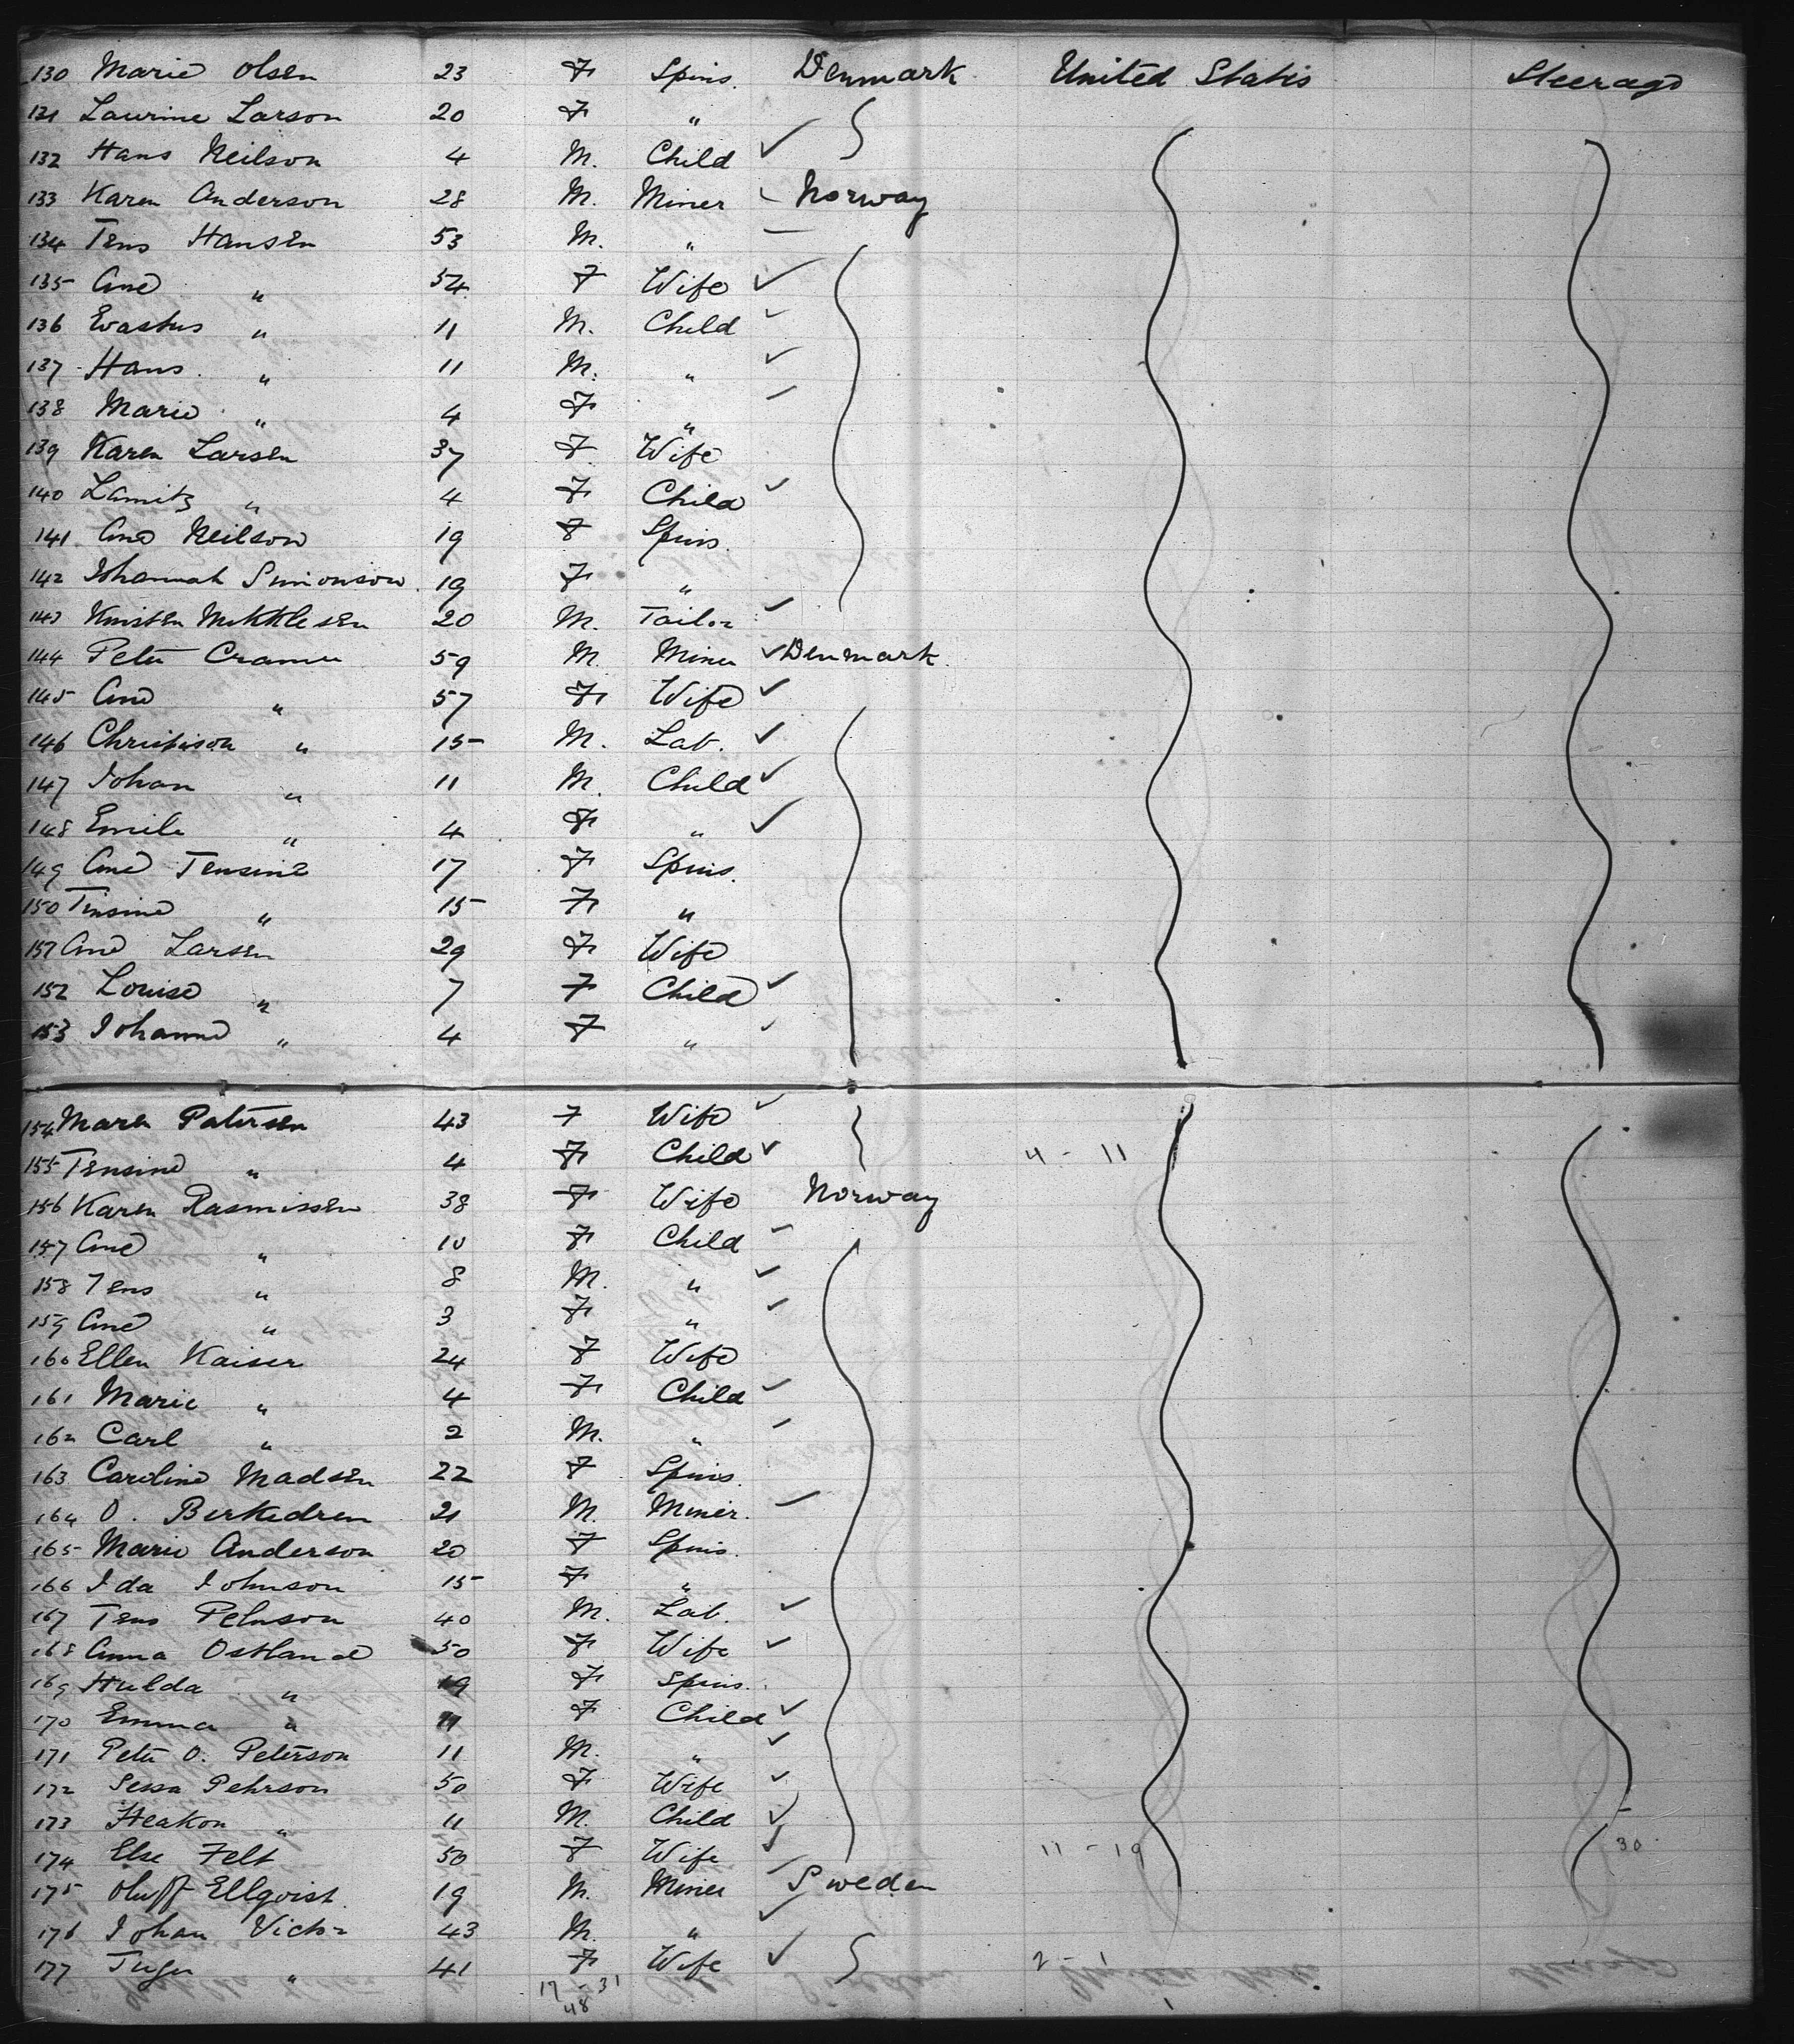 130 Marie Olsen 23 F Spins. Denmark United States Steerage
131 Laurine Larson 20 F "
132 Hans Neilson 4 M. Child
133 Karen Anderson 28 M. Miner Norway
134 Jens Hansen 53 M. "
135 Ane " 54 F Wife
136 Erastus " 11 M. Child
137 Hans " 11 M. "
138 Marie " 4 F "
139 Karen Larsen 37 F Wife
140 " 4 F Child
141 Ane Neilson 19 F Spins.
142 Johannah Simonson 19 F "
143 20 M. Tailor
144 Peter Cramer 59 M. Miner Denmark
145 Ane " 57 F Wife
146 " 15 M. Lab.
147 Johan " 11 M. Child
148 Emile " 4 F "
149 Ane Jensine 17 F Spins.
150 Jinsine " 15 F "
151 Ane Larsen 29 F Wife
152 Louise " 7 F Child
153 Johanne " 4 F "
154 Maren Petersen 43 F Wife
155 Jensine " 4 F Child 4 - 11
156 Karen Rasmissen 38 F Wife Norway
157 Ane " 10 F Child
158 Jens " 8 M. "
159 Ane " 3 F "
160 Ellen Kaiser 24 F Wife
161 Marie " 4 F Child
162 Carl " 2 M. "
163 Caroline Madsen 22 F Spins.
164 O. 21 M. Miner.
165 Marie Anderson 20 F Spins.
166 Ida Johnson 15 F "
167 Jens Pehrson 40 M. Lab.
168 Anna Ostland 50 F Wife
169 Hulda " 19 F Spins.
170 Emma " 11 F Child
171 Peter O. Peterson 11 M. "
172 Pehrson 50 F Wife
173 Heakon " 11 M. Child
174 Else Felt 50 F Wife 11 - 19 30
175 Oluff Ellqvist 19 M. Miner Sweden
176 Johan Victor 43 M. "
177 " 41 F Wife 2 - 1
17 - 31
48